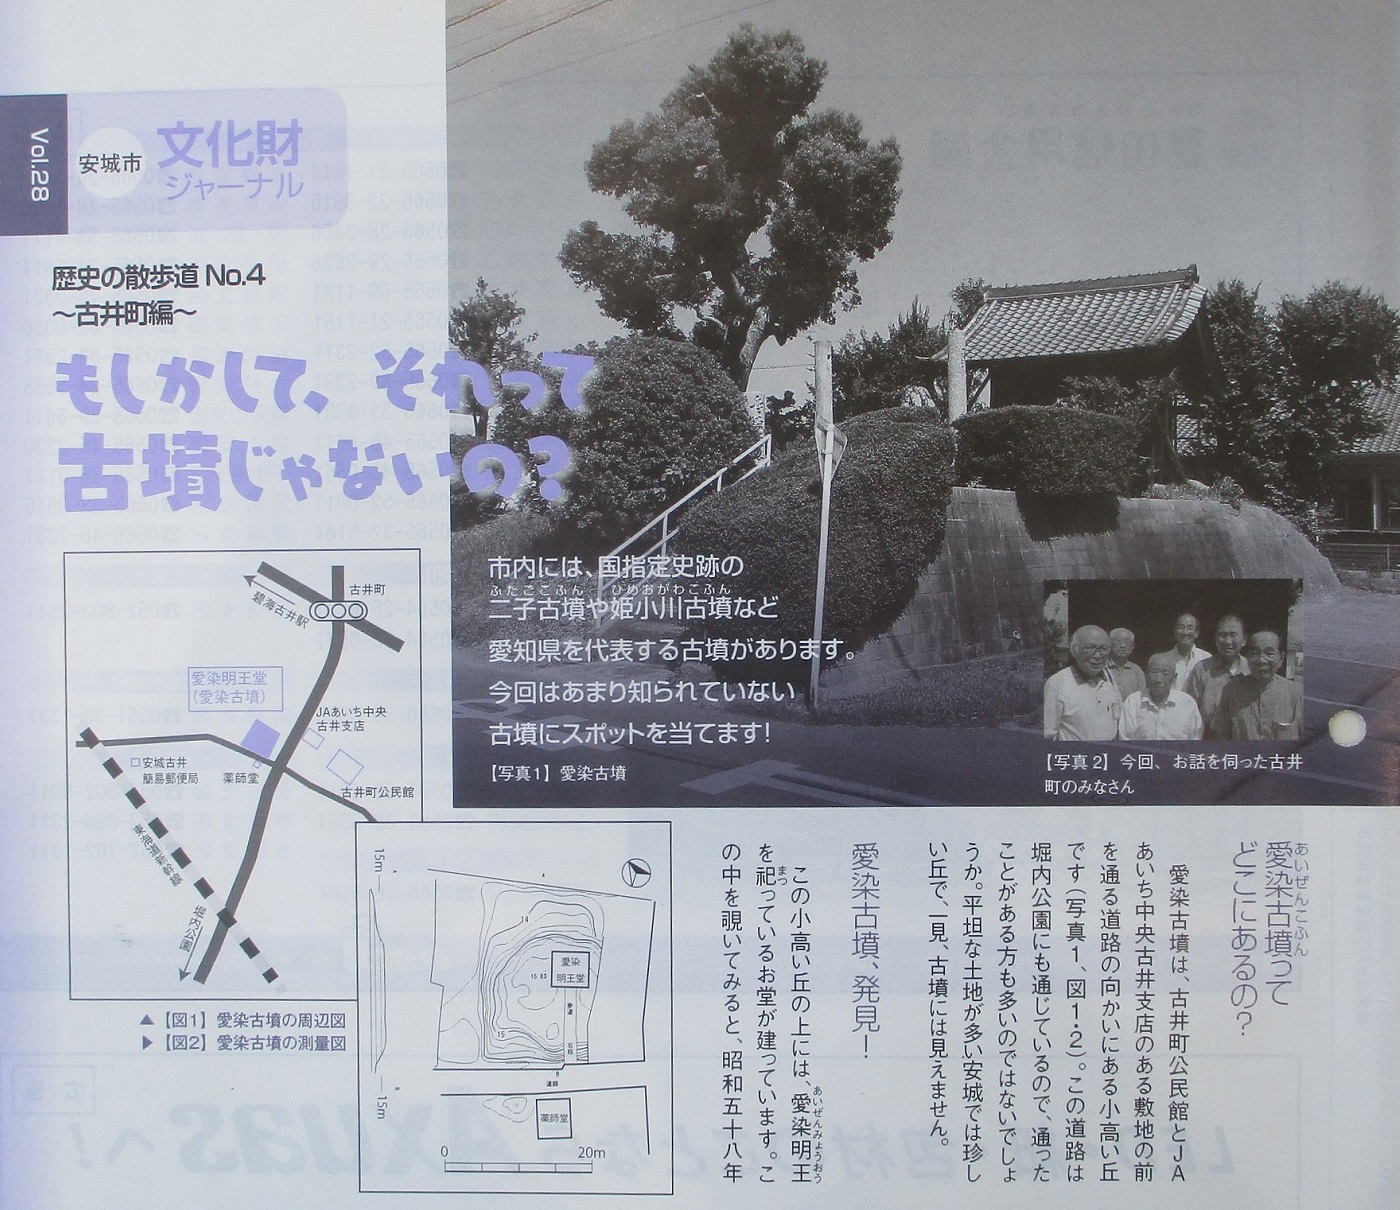 Vol.28
安城市
文化財
ジャーナル
歴史の散歩道 No.4
～古井町編～
もしかして、それって
古墳じゃないの？
市内には、国指定史跡の
ふたごこふん ひめおがわこふん
二子古墳や姫小川古墳など
愛知県を代表する古墳があります。
今回はあまり知られていない
古墳にスポットを当てます！
【写真1】愛染古墳
【写真2】今回、お話を伺った古井
町のみなさん
古井町
碧海古井駅
愛染明王堂
（愛染古墳）
JAあいち中央
古井支店
安城古井
簡易郵便局
薬師堂
古井町公民館
東海道新幹線
堀内公園
▲【図1】愛染古墳の周辺図
▶【図2】愛染古墳の測量図
15m
14
愛染
明王堂
15.83
参道
15
石段
道路
薬師堂
15m
0
20m
あいぜんこふん
愛染古墳って
どこにあるの？
愛染古墳は、古井町公民館とJA
あいち中央古井支店のある敷地の前
を通る道路の向かいにある小高い丘
です（写真1、図1・2）。この道路は
堀内公園にも通じているので、通った
ことがある方も多いのではないでしょ
うか。平坦な土地が多い安城では珍し
い丘で、一見、古墳には見えません。
愛染古墳、発見！
あいぜんみょうおう
この小高い丘の上には、愛染明王
まつ
を祀っているお堂が建っています。こ
の中を覗いてみると、昭和五十八年